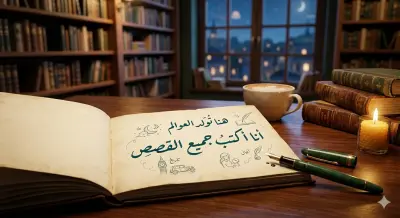 هنا تُولد العوالم
أنا أكتبُ جميع القصصِ